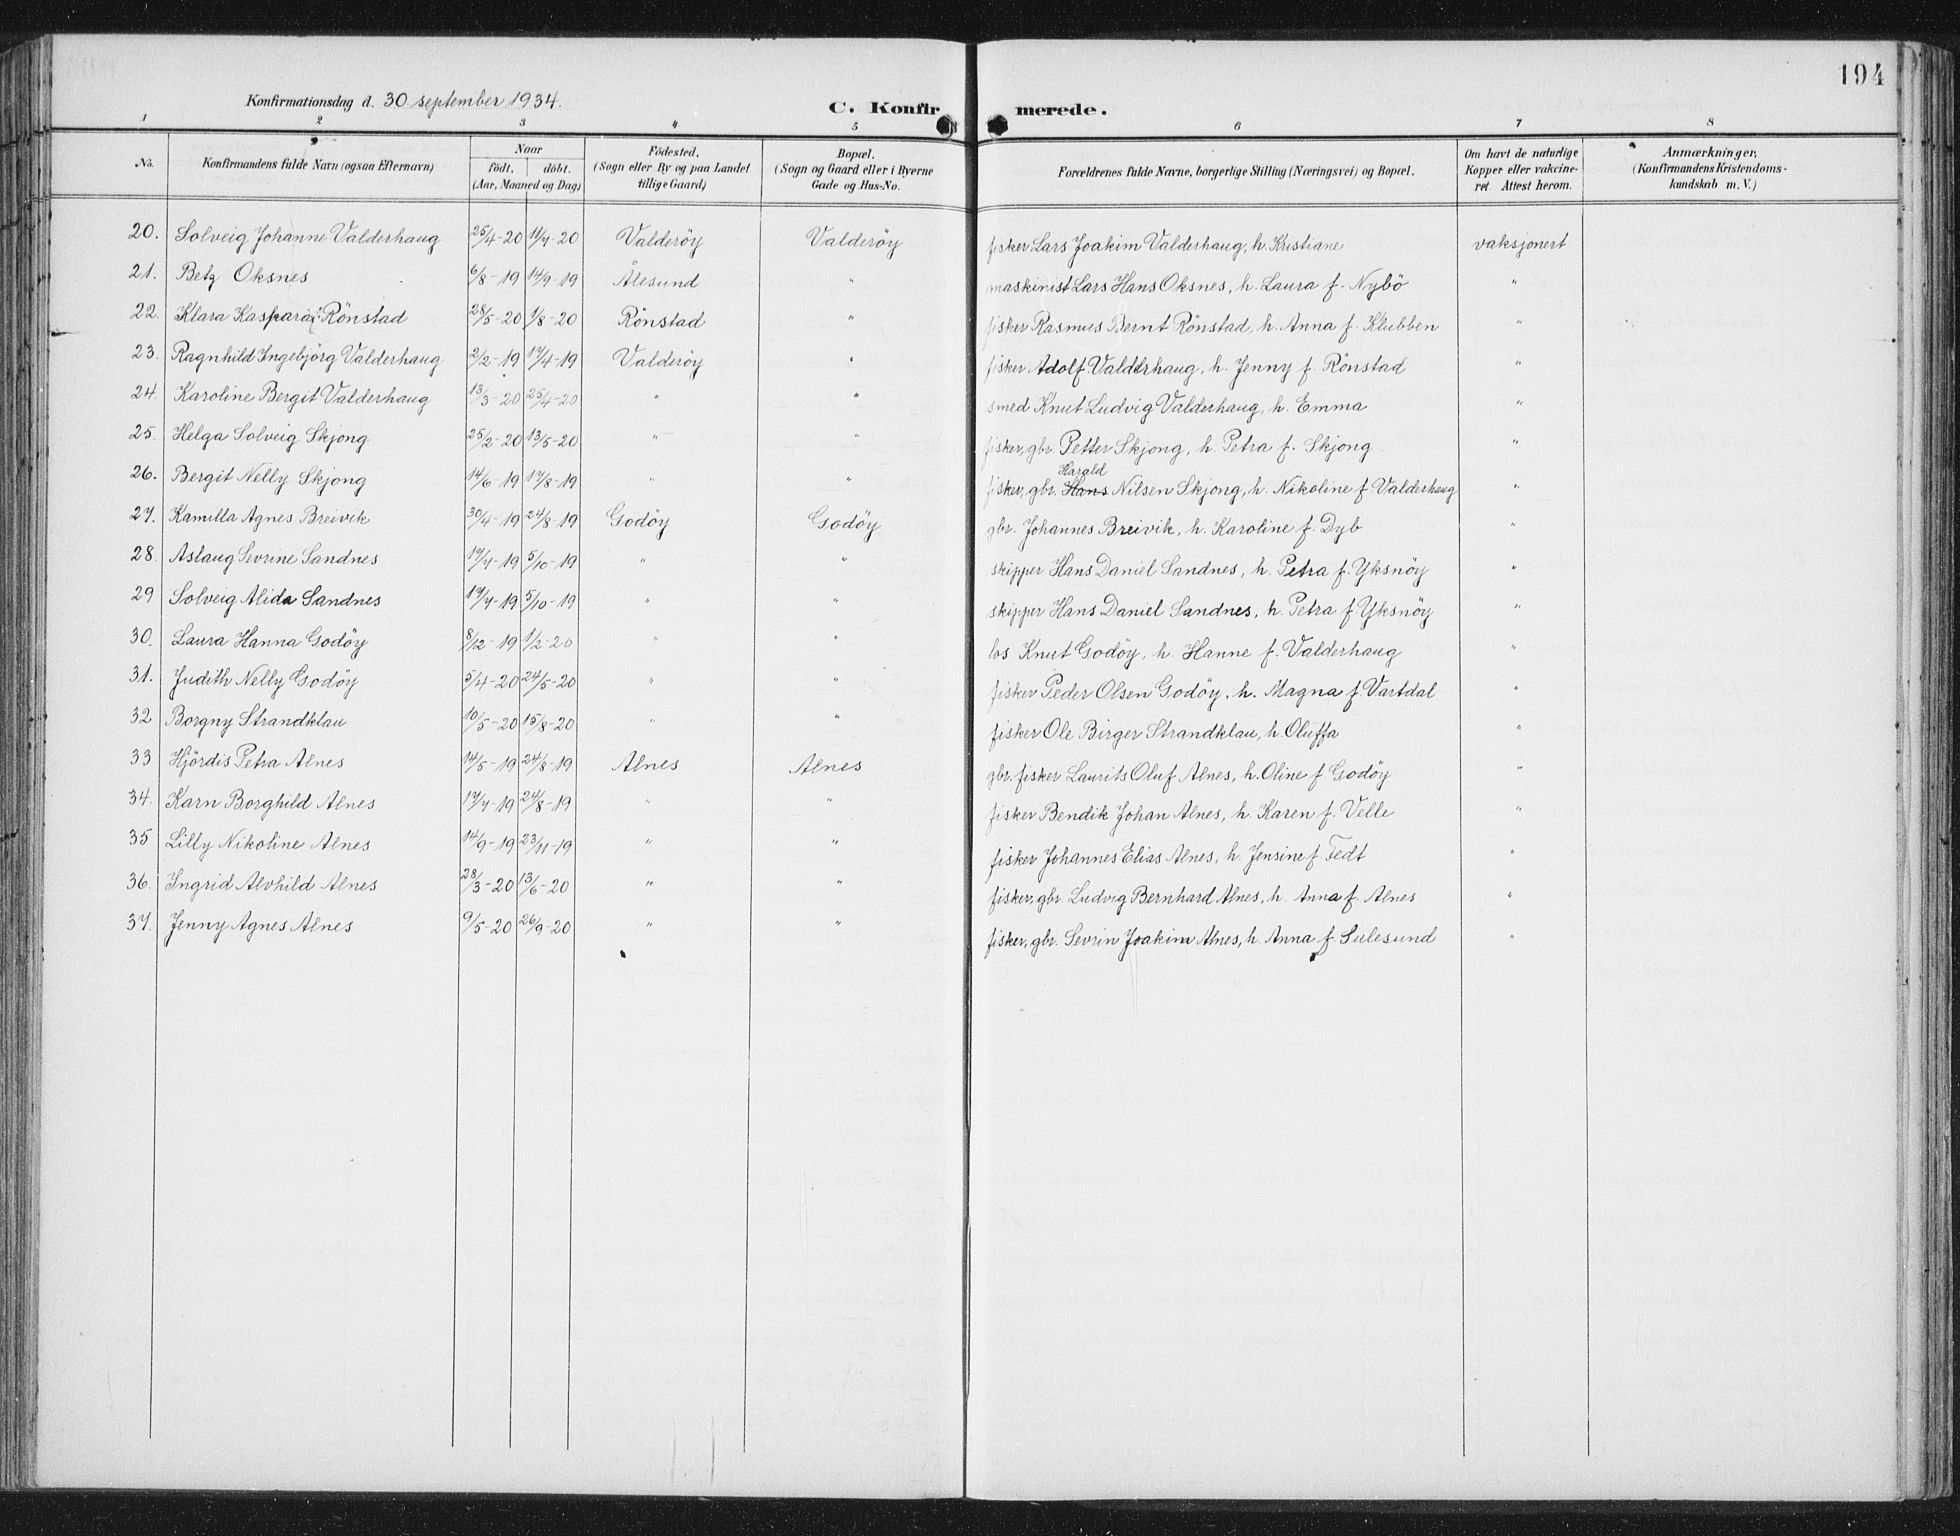 194
Konfirmationsdag d. 30 september 1934.
C. Konfirmerede.
1 2 3 4 5 6 7 8
No. Konfirmandens fulde Navn (ogsaa Efternavn) Naar födt. döbt. (Aar, Maaned og Dag) Födested. (Sogn eller By og paa Landet tillige Gaard) Bopæl. (Sogn og Gaard eller i Byerne Gade og Hus-No. Forældrenes fulde Navne, borgerlige Stilling (Næringsvei) og Bopæl. Om havt de naturlige Kopper eller vakcineret Attest herom. Anmærkninger, (Konfirmandens Kristendomskundskab m. V.)
20. Solveig Johanne Valderhaug 25/4-20 11/7-20 Valderöy Valderöy fisker Lars Joakim Valderhaug, h. Kristiane vaksjonert
21. Betz Oksnes 6/8-19 14/9-19 Ålesund " maskinist Lars Hans Oksnes, h. Laura f. Nybö "
22. Klara Kaspara Rönstad 28/5-20 1/8-20 Rönstad " fisker Rasmus Bernt Rönstad, h. Anna f. Klubben "
23. Ragnhild Ingebjörg Valderhaug 2/2-19 17/4-19 Valderöy " fisker Adolf Valderhaug, h. Jenny f. Rönstad "
24. Karoline Bergit Valderhaug 13/3-20 25/4-20 " " smed Knut Ludvig Valderhaug, h. Emma "
25. Helga Solveig Skjong 25/2-20 13/5-20 " " fisker, gbr. Petter Skjong, h. Petra f. Skjong. "
Harald
26. Bergit Nelly Skjong 14/6-19 17/8-19 " " fisker, gbr. Hans Nilsen Skjong, h. Nikoline f Valderhaug "
27. Kamilla Agnes Breivik 30/4-19 24/8-19 Godöy Godöy gbr. Johannes Breivik, h. Karoline f. Dyb "
28. Aslaug Sevrine Sandnes 17/7-19 5/10-19 " " skipper Hans Daniel Sandnes, h. Petra f. Yksnöy "
29 Solveig Alida Sandnes 17/7-19 5/10-19 " " skipper Hans Daniel Sandnes, h. Petra f Yksnöy "
30. Laura Hanna Godöy 8/12-19 1/2-20 " " los Knut Godöy, h. Hanne f. Valderhaug "
31. Judith Nelly Godöy 5/4-20 24/5-20 " " fisker Peder Olsen Godöy, h. Magna f Vartdal "
32 Borgny Strandklau 10/5-20 15/8-20 " " fisker Ole Birger Strandklau, h. Oluffa "
33 Hjördis Petra Alnes 14/5-19 24/8-19 Alnes Alnes gbr. fisker Laurits Oluf Alnes, h. Oline f Godöy "
34. Karn Borghild Alnes 17/7-19 24/8-19 " " fisker Bendik Johan Alnes, h. Karen f. Velle "
35 Lilly Nikoline Alnes 14/9-19 23/11-19 " " fisker Johannes Elias Alnes, h. Jensine f Fedt "
36. Ingrid Alvhild Alnes 28/3-20 13/6-20 " " fisker, gbr. Ludvig Bernhard Alnes, h. Anna f. Alnes "
37. Jenny Agnes Alnes 9/5-20 26/9-20 " " fisker, gbr. Sevrin Joakim Alnes, h. Anna f. Sulesund "